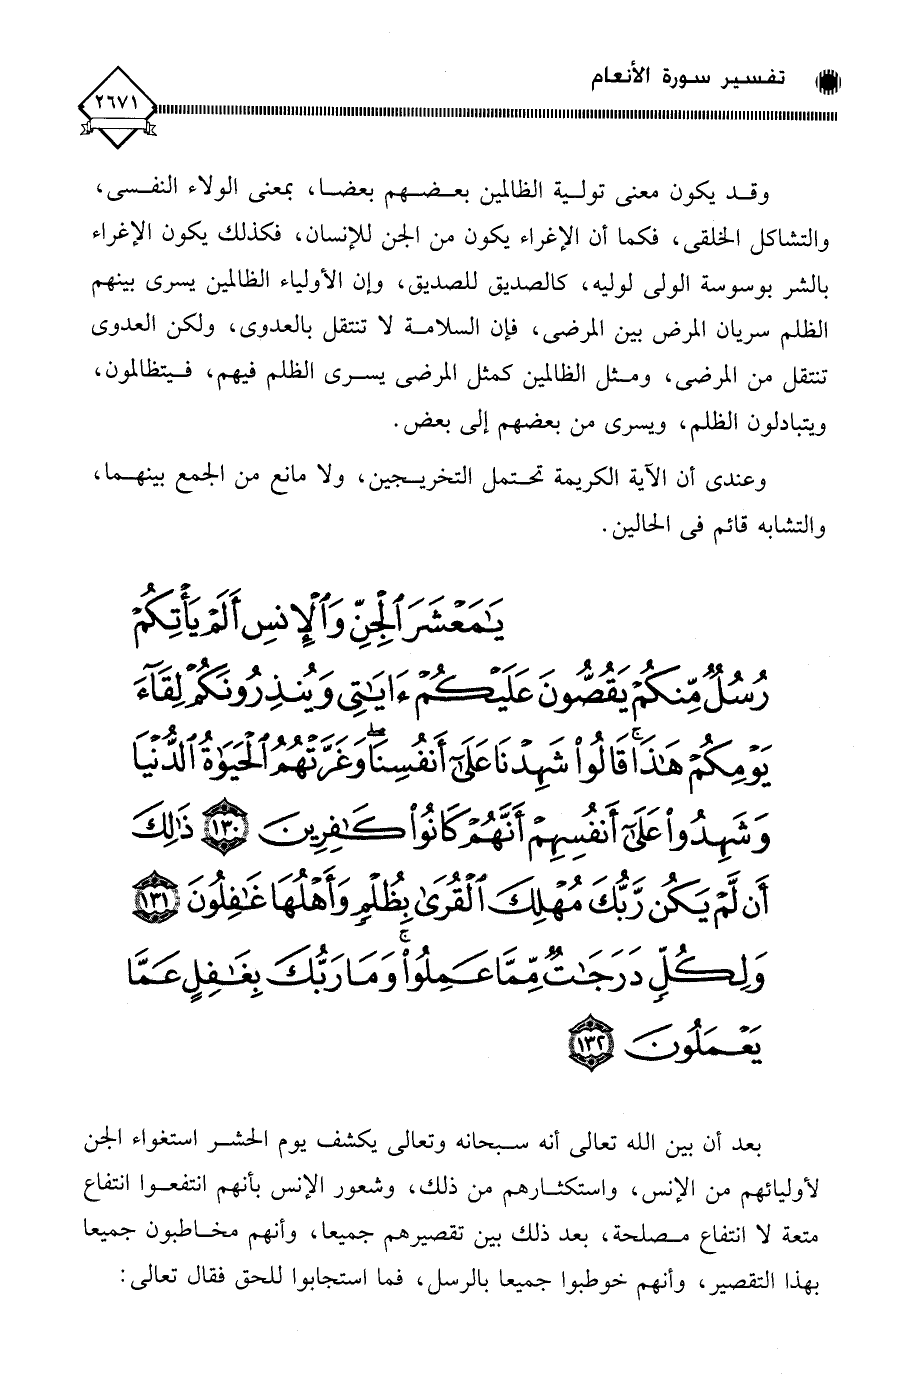 تفسير سورة الأنعام
٢٦٧١
وقد يكون معنى تولية الظالمين بعضهم بعضا، بمعنى الولاء النفسى،
والتشاكل الخلقى، فكما أن الإغراء يكون من الجن للإنسان، فكذلك يكون الإغراء
بالشر بوسوسة الولى لوليه، كالصديق للصديق، وإن الأولياء الظالمين يسرى بينهم
الظلم سريان المرض بين المرضى، فإن السلامة لا تنتقل بالعدوى، ولكن العدوى
تنتقل من المرضى، ومثل الظالمين كمثل المرضى يسرى الظلم فيهم، فيتظالمون،
ويتبادلون الظلم، ويسرى من بعضهم إلى بعض.
وعندى أن الآية الكريمة تحتمل التخريجين، ولا مانع من الجمع بينهما،
والتشابه قائم فى الحالين.
يَٰمَعۡشَرَ ٱلۡجِنِّ وَٱلۡإِنسِ أَلَمۡ يَأۡتِكُمۡ
رُسُلٞ مِّنكُمۡ يَقُصُّونَ عَلَيۡكُمۡ ءَايَٰتِي وَيُنذِرُونَكُمۡ لِقَآءَ
يَوۡمِكُمۡ هَٰذَاۚ قَالُواْ شَهِدۡنَا عَلَىٰٓ أَنفُسِنَاۖ وَغَرَّتۡهُمُ ٱلۡحَيَوٰةُ ٱلدُّنۡيَا
وَشَهِدُواْ عَلَىٰٓ أَنفُسِهِمۡ أَنَّهُمۡ كَانُواْ كَٰفِرِينَ ١٣٠ ذَٰلِكَ
أَن لَّمۡ يَكُن رَّبُّكَ مُهۡلِكَ ٱلۡقُرَىٰ بِظُلۡمٖ وَأَهۡلُهَا غَٰفِلُونَ ١٣١
وَلِكُلّٖ دَرَجَٰتٞ مِّمَّا عَمِلُواْۚ وَمَا رَبُّكَ بِغَٰفِلٍ عَمَّا
يَعۡمَلُونَ ١٣٢
بعد أن بين الله تعالى أنه سبحانه وتعالى يكشف يوم الحشر استغواء الجن
لأوليائهم من الإنس، واستكثارهم من ذلك، وشعور الإنس بأنهم انتفعوا انتفاع
متعة لا انتفاع مصلحة، بعد ذلك بين تقصيرهم جميعا، وأنهم مخاطبون جميعا
بهذا التقصير، وأنهم خوطبوا جميعا بالرسل، فما استجابوا للحق فقال تعالى: